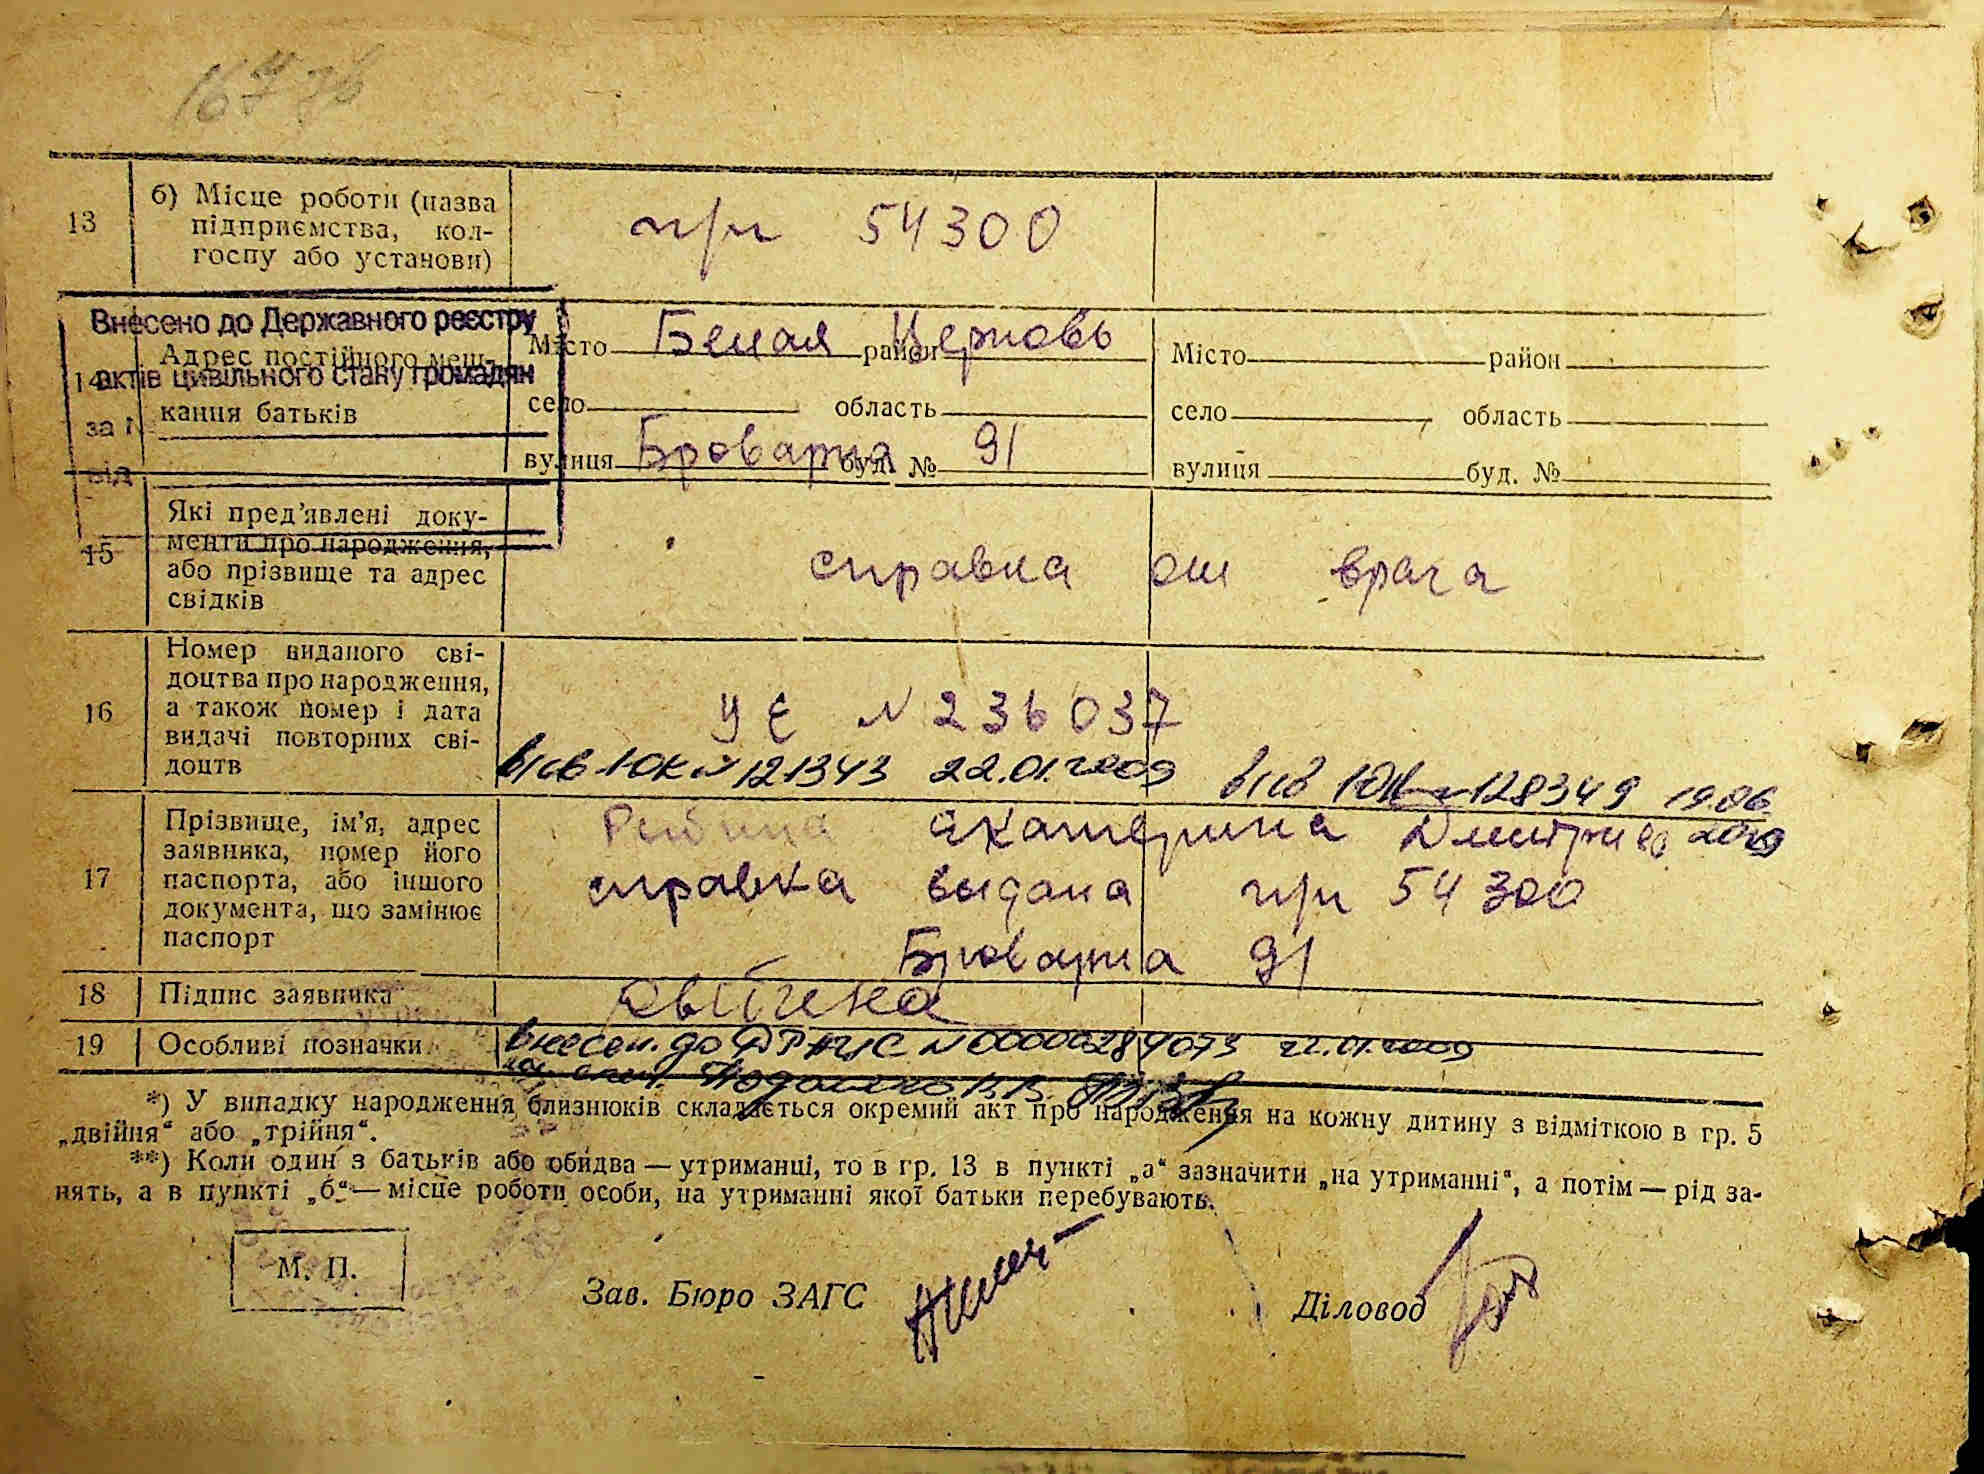 13 б) Місце роботи (назва
підприємства, кол-
госпу або установи)
п/п 54300
Внесено до Державного реєстру
актів цивільного стану громадян
за №
від
14 Адрес постійного меш-
кання батьків
Місто Белая район Церковь
село область
вулиця Броварна буд. № 91
Місто район
село область
вулиця буд. №
15 Які пред’явлені доку-
менти про народження,
або прізвище та адрес
свідків
справка от врача
16 Номер виданого сві-
доцтва про народження,
а також номер і дата
видачі повторних сві-
доцтв
УЄ № 236037
№ 121343 22.01.2009
№ 128349 19.06
2009
17 Прізвище, ім’я, адрес
заявника, номер його
паспорта, або іншого
документа, що замінює
паспорт
Екатерина Дмитриев
справка выдана п/п 54300
Броварна 91
18 Підпис заявника
19 Особливі позначки
внесен. до ДРАЦС № 00000284073 22.01.2009
*) У випадку народження близнюків складається окремий акт про народження на кожну дитину з відміткою в гр. 5
„двійня“ або „трійня“.
**) Коли один з батьків або обидва — утриманці, то в гр. 13 в пункті „а“ зазначити „на утриманні“, а потім — рід за-
нять, а в пункті „б“ — місце роботи особи, на утриманні якої батьки перебувають.
М. П.
Зав. Бюро ЗАГС
Діловод